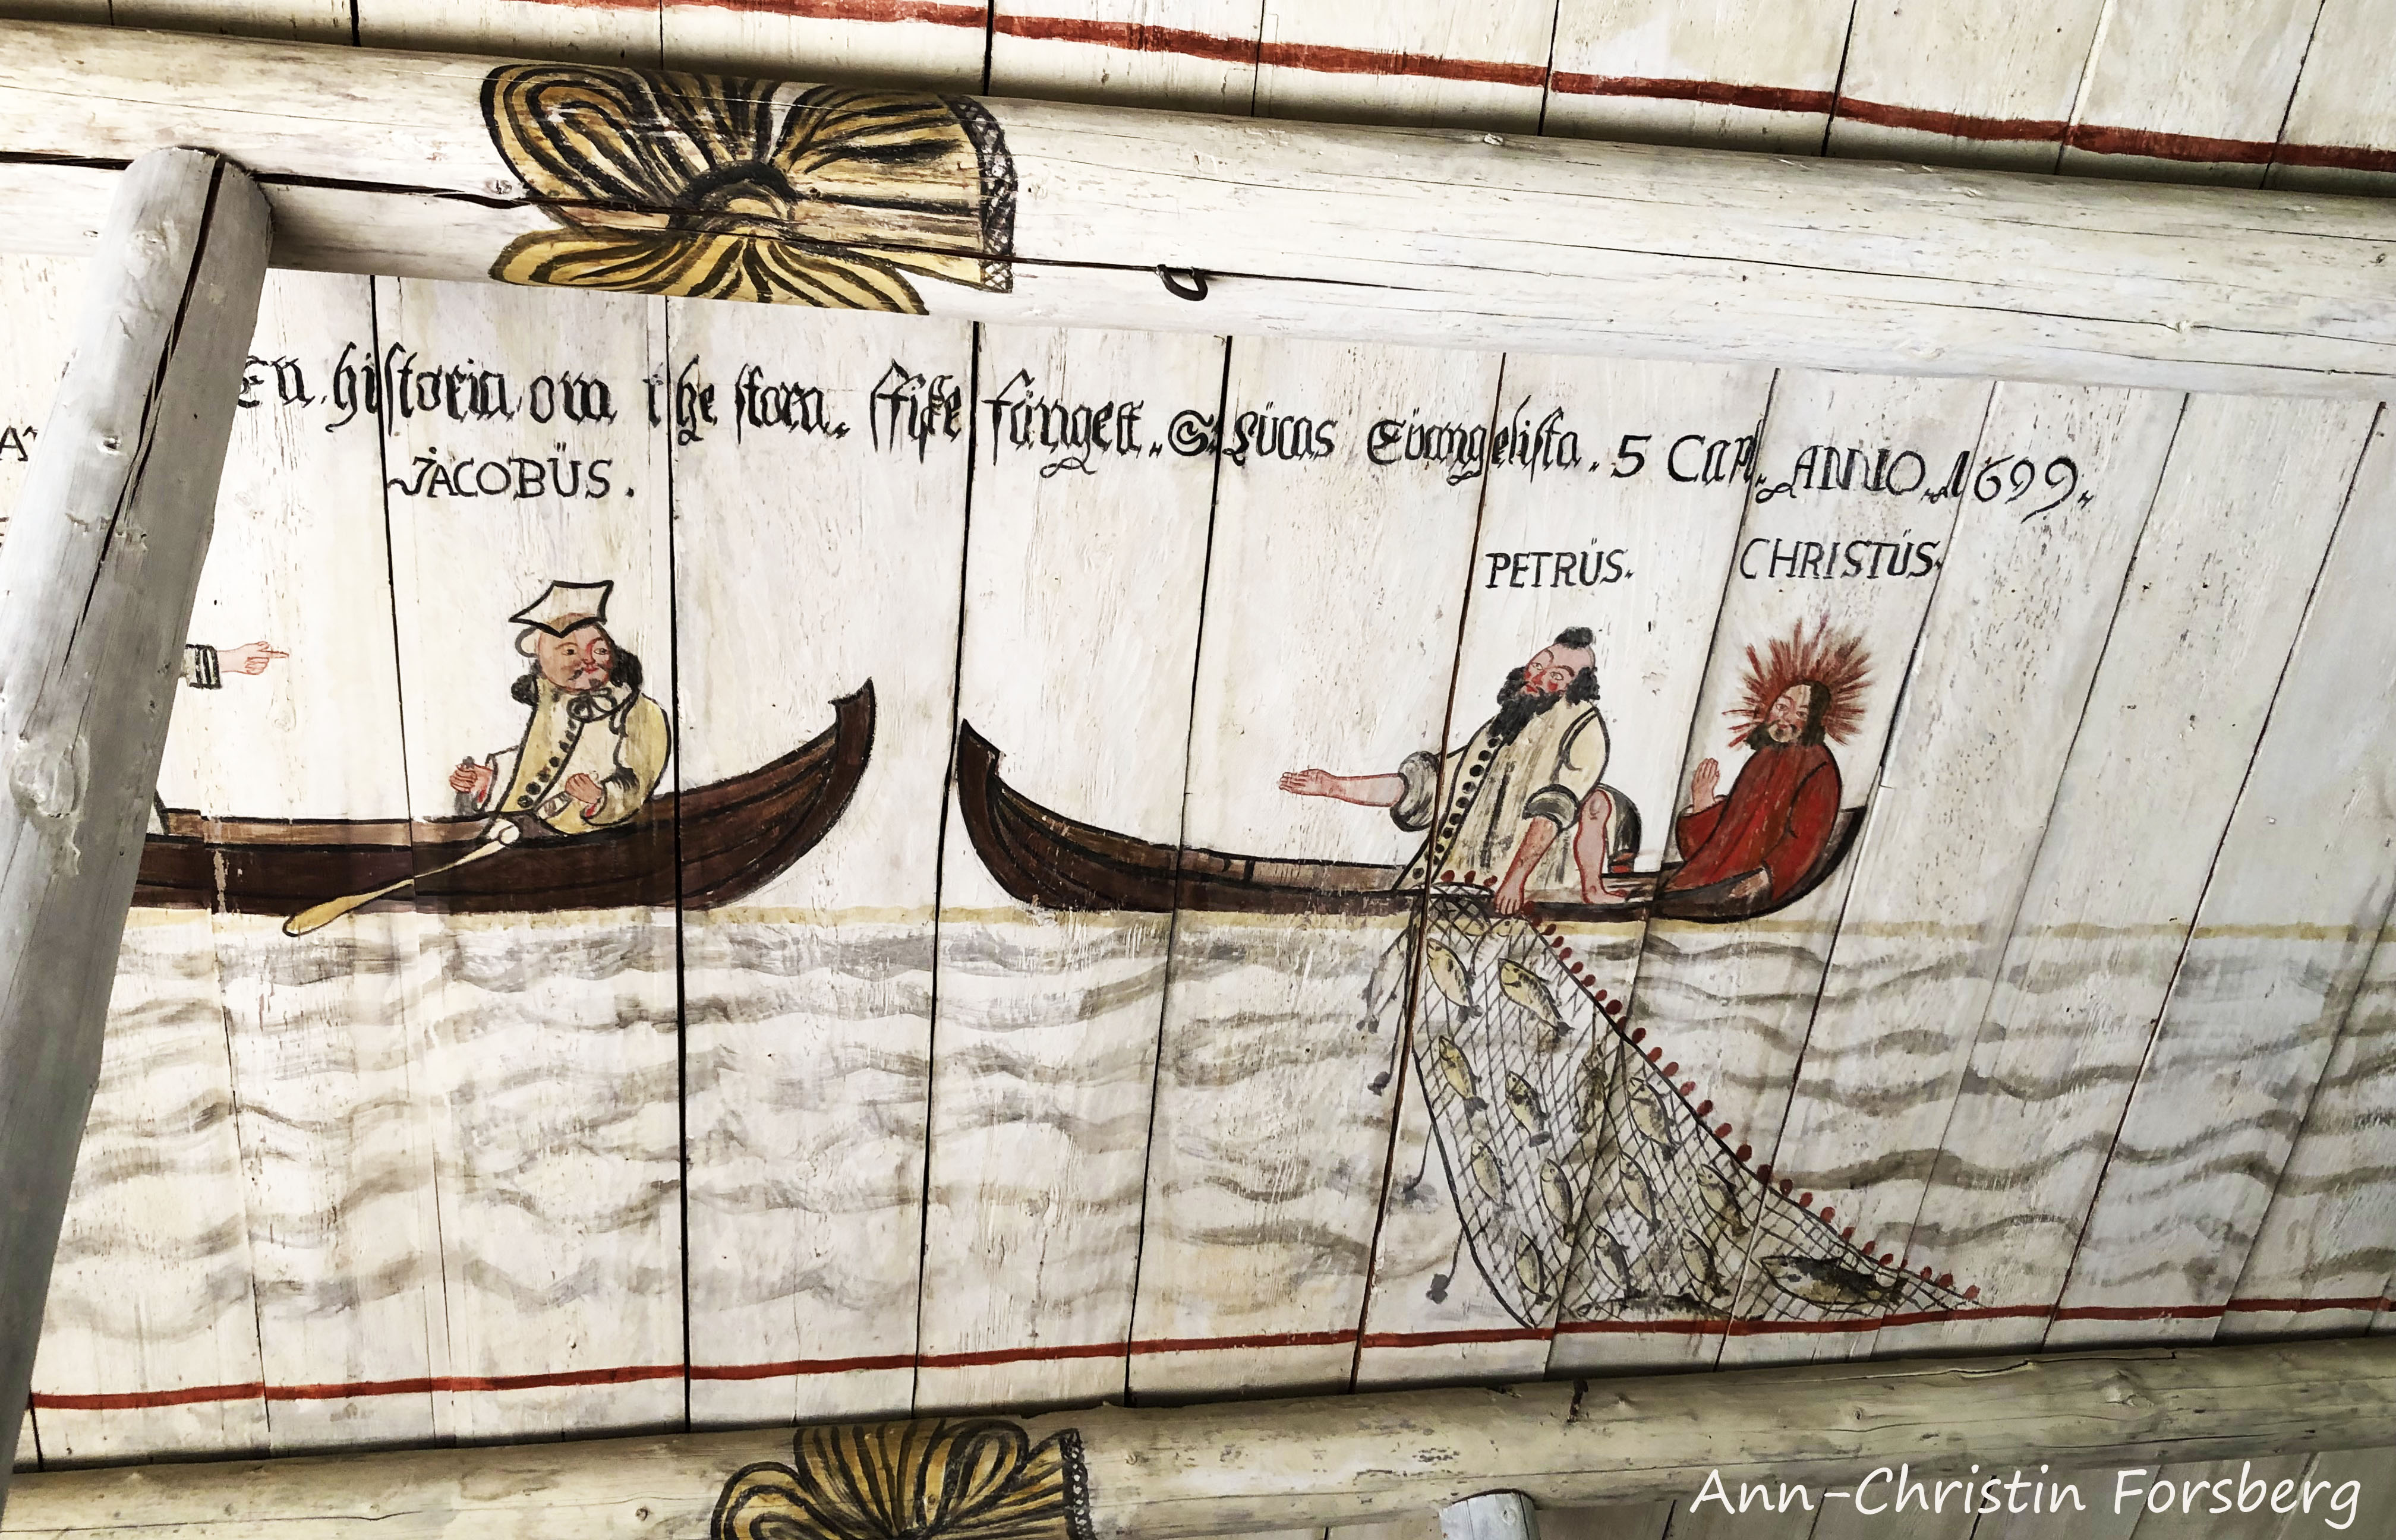 En historia om the stora. ffiske fångett. S. Lücas Evangelista. 5 Cap. ANNO. 1699.
JACOBÜS.
PETRÜS. CHRISTÜS.
Ann-Christin Forsberg